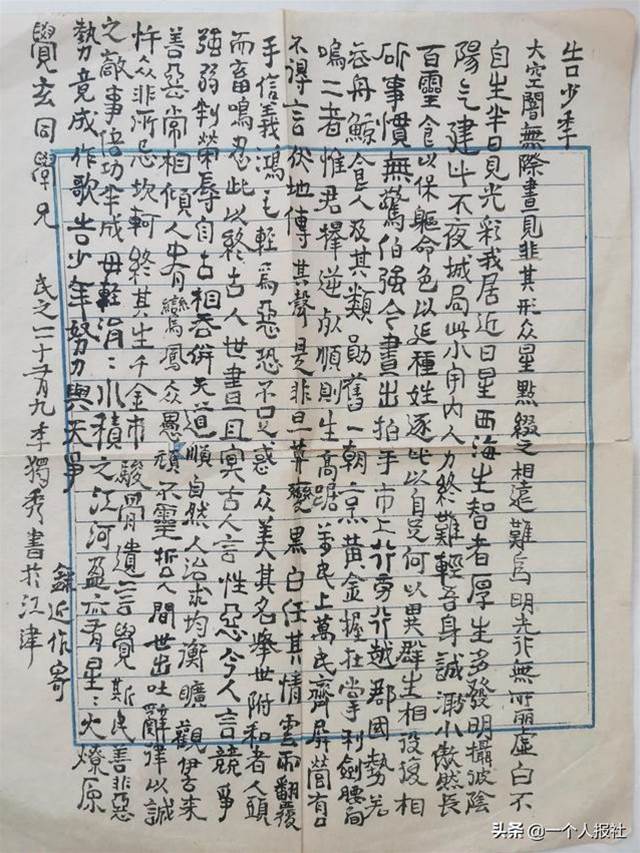 告少年
大空闇無際晝見非其形众星點綴之相遠難為明光行無所丽虚白不
自生半日見光彩我居近日星西海生智者厚生多發明攝彼陰
陽气建此不夜城局此小宇内人力終難輕吾身誠渺小傲然長
百靈食以保軀命色以延種姓逐此以自足何以異群生相役復相
斫事慣無驚伯强今晝出拍手市上行旁行越郡國勢若
吞舟鯨食人及其類勛舊一朝烹黄金握在掌利劍腰间
鳴二者惟君擇逆死順則生高踞萬民上萬民齊屏營有口
不得言伏地傳其聲是非旦暮變黑白任其情雲雨翻覆
手信義鴻毛輕爲惡恐不足惑众美其名舉世附和者人頭
而畜鳴忍此以終古人世晝且冥古人言性惡今人言競爭
强弱判榮辱自古相吞併天道順自然人治求均衡曠觀伊古來
善惡常相傾人中有鸞鳳众愚頑不靈哲人間世出吐辭律以誠
忤众非所忌坎軻終其生千金市駿骨遺言覺斯民善非惡
之敵事倍功半成毋輕涓:水積之江河盈亦有星:火燎原
勢竟成作歌告少年努力與天爭
錄近作寄
覺玄同學兄
民之二十有九年獨秀書於江津
头条 @一个人报社